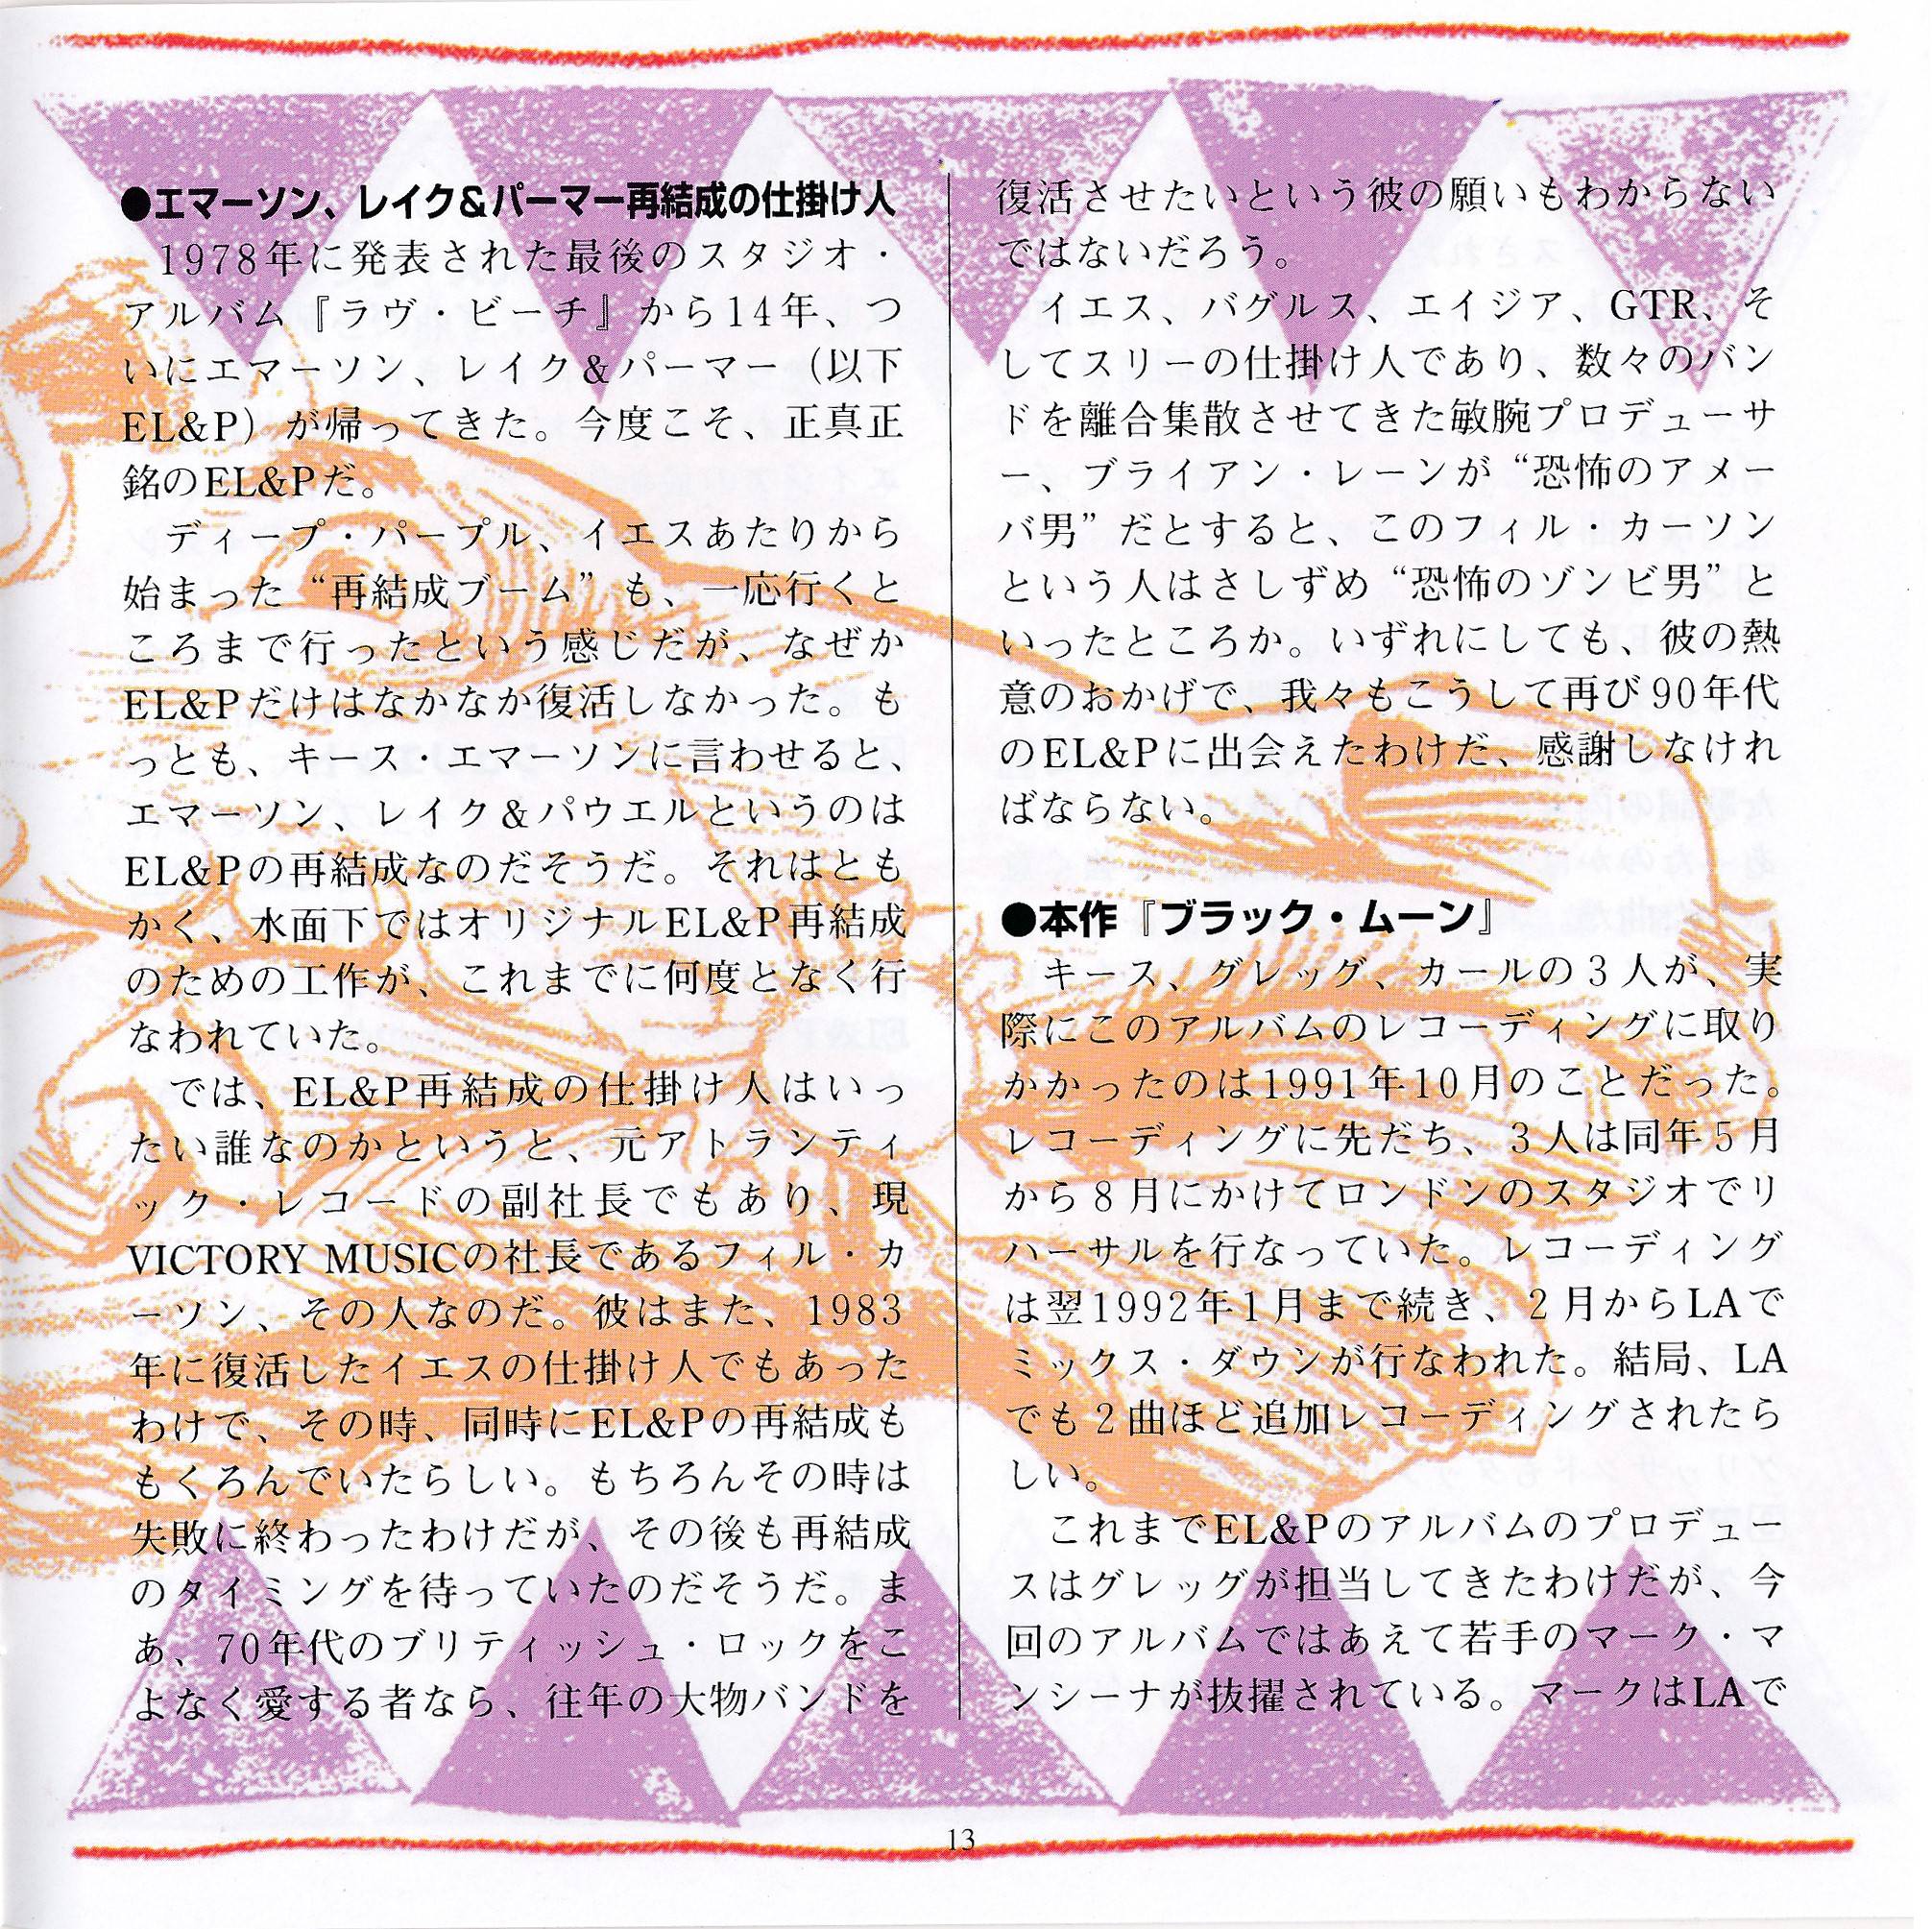 ●エマーソン、レイク&パーマー再結成の仕掛け人
1978年に発表された最後のスタジオ・
アルバム『ラヴ・ビーチ』から14年、つ
いにエマーソン、レイク&パーマー（以下
EL&P）が帰ってきた。今度こそ、正真正
銘のEL&Pだ。
ディープ・パープル、イエスあたりから
始まった“再結成ブーム”も、一応行くと
ころまで行ったという感じだが、なぜか
EL&Pだけはなかなか復活しなかった。も
っとも、キース・エマーソンに言わせると、
エマーソン、レイク&パウエルというのは
EL&Pの再結成なのだそうだ。それはとも
かく、水面下ではオリジナルEL&P再結成
のための工作が、これまでに何度となく行
なわれていた。
では、EL&P再結成の仕掛け人はいっ
たい誰なのかというと、元アトランティ
ック・レコードの副社長でもあり、現
VICTORY MUSICの社長であるフィル・カ
ーソン、その人なのだ。彼はまた、1983
年に復活したイエスの仕掛け人でもあった
わけで、その時、同時にEL&Pの再結成も
もくろんでいたらしい。もちろんその時は
失敗に終わったわけだが、その後も再結成
のタイミングを待っていたのだそうだ。ま
あ、70年代のブリティッシュ・ロックをこ
よなく愛する者なら、往年の大物バンドを
復活させたいという彼の願いもわからない
ではないだろう。
イエス、バグルス、エイジア、GTR、そ
してスリーの仕掛け人であり、数々のバン
ドを離合集散させてきた敏腕プロデューサ
ー、ブライアン・レーンが“恐怖のアメー
バ男”だとすると、このフィル・カーソン
という人はさしずめ“恐怖のゾンビ男”と
いったところか。いずれにしても、彼の熱
意のおかげで、我々もこうして再び90年代
のEL&Pに出会えたわけだ、感謝しなけれ
ばならない。
●本作『ブラック・ムーン』
キース、グレッグ、カールの3人が、実
際にこのアルバムのレコーディングに取り
かかったのは1991年10月のことだった。
レコーディングに先だち、3人は同年5月
から8月にかけてロンドンのスタジオでリ
ハーサルを行なっていた。レコーディング
は翌1992年1月まで続き、2月からLAで
ミックス・ダウンが行なわれた。結局、LA
でも2曲ほど追加レコーディングされたら
しい。
これまでEL&Pのアルバムのプロデュー
スはグレッグが担当してきたわけだが、今
回のアルバムではあえて若手のマーク・マ
ンシーナが抜擢されている。マークはLAで
13